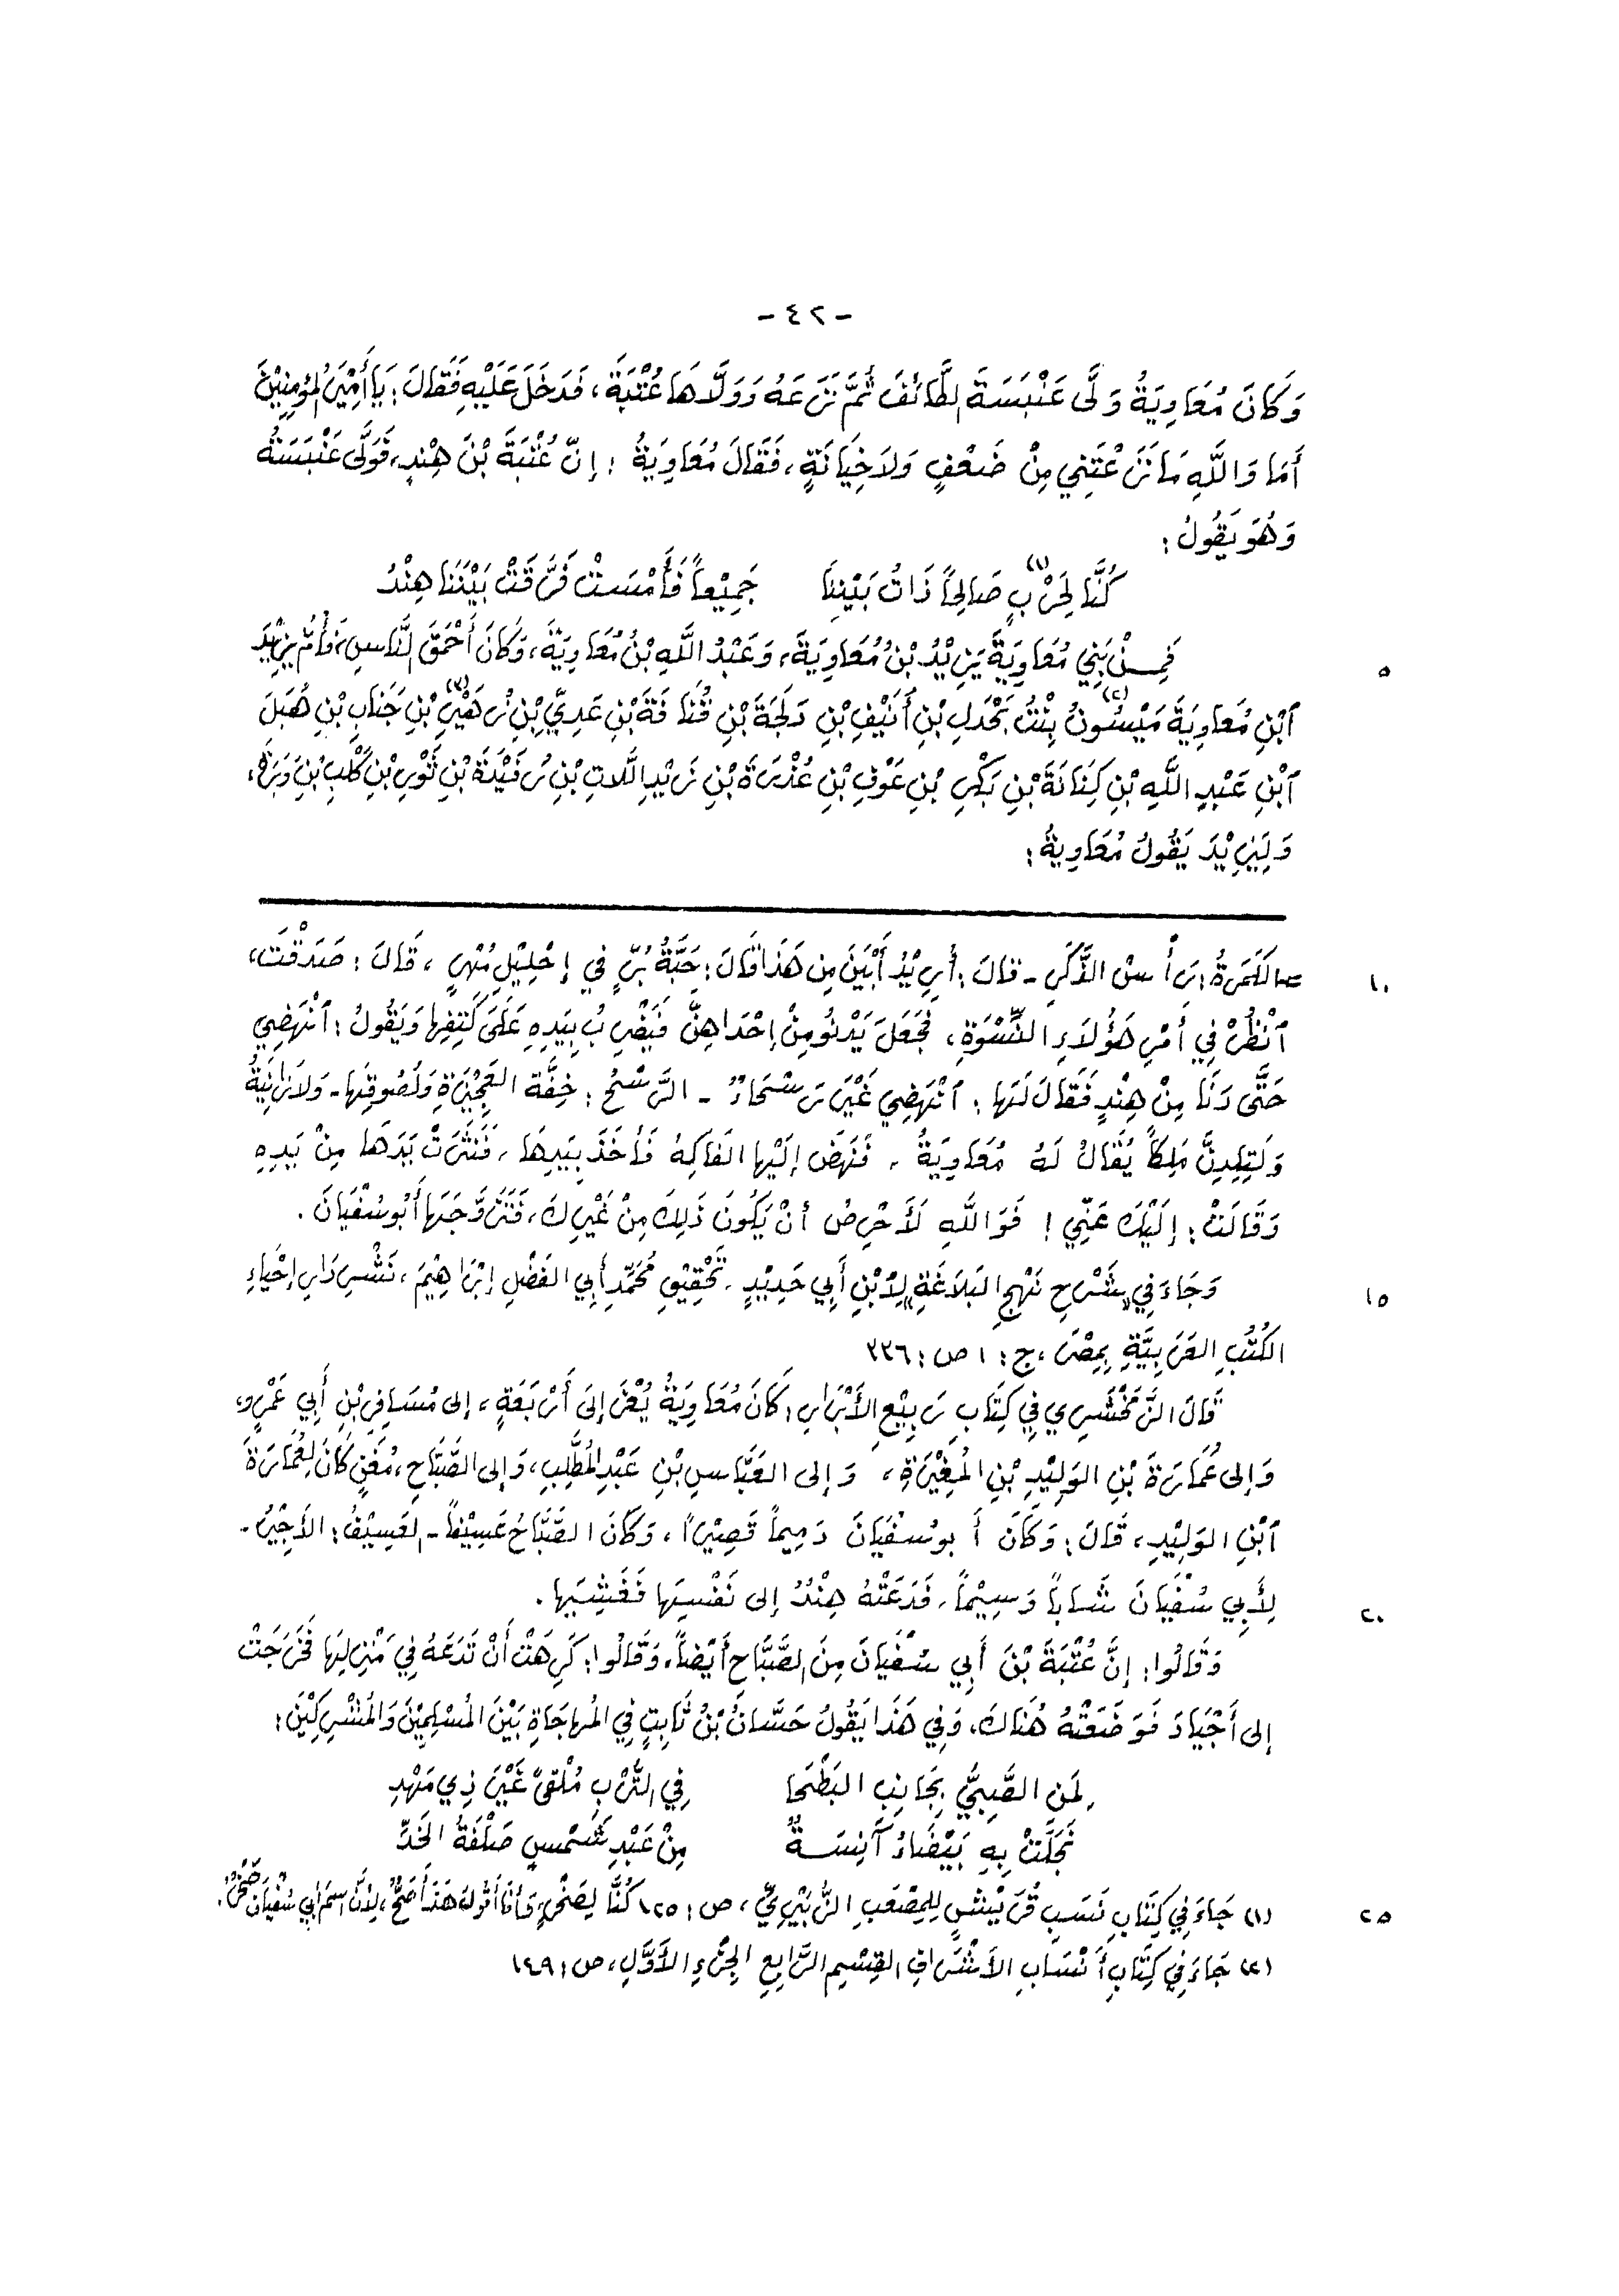 - ٤٢ -
وَكَانَ مُعَاوِيَةُ وَلَّى عَنْبَسَةَ الطَّائفَ ثُمَّ نَزَعَهُ وَوَلَّاهَا عُتْبَةَ، فَدَخَلَ عَلَيْهِ فَقَالَ: يَا أَمِيْرَ المُؤمِنِيْنَ
أَمَا وَاللَّهِ مَا نَزَعْتَنِي مِنْ ضَعْفٍ وَلاَ خِيَانَةٍ، فَقَالَ مُعَاوِيَةُ : إِنَّ عُتْبَةَ بْنَ هِنْدٍ، فَوَلَّى عَنْبَسَةُ
وَهُوَ يَقُولُ:
كُنَّا لِحَرْبٍ (١) صَالِحًا ذَاتُ بَيْنِنَا جَمِيْعاً فَأَمْسَتْ فَرَّقَتْ بَيْنَنَا هِنْدُ
٥ فَمِنْ بَنِي مُعَاوِيَةَ يَزِيْدُ بْنُ مُعَاوِيَةَ، وَعَبْدُ اللَّهِ بْنُ مُعَاوِيَةَ، وَكَانَ أَحْمَقَ النَّاسِ، وَأُمُّ يَزِيْدَ
ٱبْنِ مُعَاوِيَةَ مَيْسُونُ (٢) بِنْتُ بَحْدَلِ بْنِ أُنَيْفِ بْنِ دَلَجَةَ بْنِ قُنَافَةَ بْنِ عَدِيِّ بْنِ زُهَيْرِ (٣) بْنِ جَنَابِ بْنِ هُبَلَ
ٱبْنِ عَبْدِ اللَّهِ بْنِ كِنَانَةَ بْنِ بَكْرِ بْنِ عَوْفِ بْنِ عُذْرَةَ بْنِ زَيْدِ اللَّاتِ بْنِ رُفَيْدَةَ بْنِ ثَوْرِ بْنِ كَلْبِ بْنِ وَبَرَةَ،
وَلِيَزِيْدَ يَقُولُ مُعَاوِيَةُ:
١٠ = الكَمَرَةُ: رَأْسُ الذَّكَرِ - قَالَ: أُرِيْدُ أَبْيَنَ مِن هَذَا قَالَ: حَبَّةُ بُرٍّ فِي إِحْلِيْلِ مُهْرٍ، قَالَ: صَدَقْتَ،
ٱنْظُرْ فِي أَمْرِ هَؤُلَاءِ النِّسْوَةِ، فَجَعَلَ يَدْنُو مِنْ إِحْدَاهِنَّ فَيَضْرِبُ بِيَدِهِ عَلَى كَتِفِهَا وَيَقُولُ: ٱنْهَضِي
حَتَّى دَنَا مِنْ هِنْدٍ فَقَالَ لَهَا: ٱنْهَضِي غَيْرَ رَسْحَاءَ - الرَّسَحُ: خِفَّة العَجِيْزَةِ وَلُصُوقِهَا - وَلاَ زَانِيَةُ
وَلَتَلِدِنَّ مَلِكاً يُقَالُ لَهُ مُعَاوِيَةُ، فَنَهَضَ إِلَيْها الفَاكِهُ فَأَخَذَ بِيَدِهَا، فَنَثَرَتْ يَدَهَا مِنْ يَدِهِ
وَقَالَتْ: إِلَيْكَ عَنِّي! فَوَاللَّهِ لَأَحْرِصُ أَنْ يَكُونَ ذَلِكَ مِنْ غَيْرِكَ، فَتَزَوَّجَهَا أَبُو سُفْيَانَ.
١٥ وَجَاءَ فِي «شَرْحِ نَهْجِ البَلَاغَةِ» لِٱبْنِ أَبِي حَدِيْدٍ، تَحْقِيْقِ مُحَمَّدِ أَبِي الفَضْلِ إِبْرَاهِيْمَ، نَشْرِ دَارِ إِحْيَاءِ
الكُتُبِ العَرَبِيَّةِ بِمِصْرَ، ج: ١ ص: ٣٣٦
قَالَ الزَّمَخْشَرِي فِي كِتَابِ رَبِيْعِ الأَبْرَارِ: كَانَ مُعَاوِيَةُ يُعْزَى إِلَى أَرْبَعَةٍ، إِلى مُسَافِرِ بْنِ أَبِي عَمْرٍو،
وَإِلى عُمَارَةَ بْنِ الوَلِيْدِ بْنِ المُغِيْرَةِ، وَإِلى العَبَّاسِ بْنِ عَبْدِ المُطَّلِبِ، وَإِلى الصَّبَّاحِ، مُغَنٍ كَانَ لِعُمَارَةَ
ٱبْنِ الوَلِيْدِ، قَالَ: وَكَانَ أَبو سُفْيَانَ دَمِيماً قَصِيْراً، وَكَانَ الصَّبَّاحُ عَسِيْفاً - العَسِيْفُ: الأَجِيْرُ -
٢٠ لِأَبِي سُفْيَانَ شَاباً وَسِيْماً، فَدَعَتْهُ هِنْدُ إِلى نَفْسِهَا فَغَشِيَهَا.
وَقَالُوا: إِنَّ عُتْبَةَ بْنَ أَبِي سُفْيَانَ مِنَ الصَّبَّاحِ أَيْضاً، وَقَالُوا: كَرِهَتْ أَنْ تَدَعَهُ فِي مَنْزِلِهَا فَخَرَجَتْ
إِلى أَجْيَادَ فَوَضَعَتْهُ هُنَاكَ، وَفِي هَذَا يَقُولُ حَسَّانُ بْنُ ثَابِتٍ فِي المُهاجَاةِ بَيْنَ المُسْلِمِيْنَ وَالمُشْرِكِيْنَ:
لِمَنِ الصَّبِيُّ بِجَانِبِ البَطْحَا فِي التُّرْبِ مُلْقىً غَيْرَ ذِي مَهْدِ
نَجَلَتْ بِهِ بَيْضَاءُ آنِسَةٌ مِنْ عَبْدِ شَمْسٍ صَلْفَةُ الخَدِّ
٢٥ (١) جَاءَ فِي كِتَابِ نَسَبِ قُرَيْشٍ لِلمِصْعَبِ الزُّبَيْرِيِّ، ص: ١٢٥ كُنَّا لِصَخْرٍ، وَأَنَا أَقُولُ هَذَا أَصَحُّ، لِأَنَّ اسمَ أَبِي سُفْيَانَ صَخْرٌ.
(٢) جَاءَ فِي كِتَابِ أَنْسَابِ الأَشْرَافِ القِسْمِ الرَّابِعِ الجُزْءِ الأَوَّلِ، ص: ١٤٩